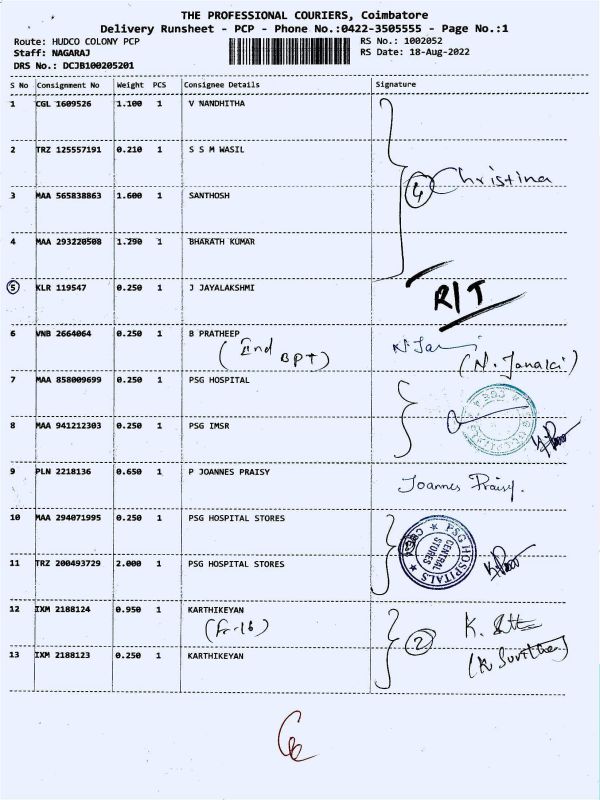 THE PROFESSIONAL COURIERS, Coimbatore
Delivery Runsheet - PCP - Phone No.:0422-3505555 - Page No.:1
Route: HUDCO COLONY PCP
RS No.: 1002052
Staff: NAGARAJ
RS Date: 18-Aug-2022
DRS No.: DCJB100205201
S No Consignment No Weight PCS Consignee Details Signature
1 CGL 1609526 1.100 1 V NANDHITHA
2 TRZ 125557191 0.210 1 S S M WASIL
4 Christina
3 MAA 565838863 1.600 1 SANTHOSH
4 MAA 293220508 1.290 1 BHARATH KUMAR
5 KLR 119547 0.250 1 J JAYALAKSHMI
R/T
6 VNB 2664064 0.250 1 B PRATHEEP
(IInd BPT) (N. Janaki)
7 MAA 858009699 0.250 1 PSG HOSPITAL
8 MAA 941212303 0.250 1 PSG IMSR
9 PLN 2218136 0.650 1 P JOANNES PRAISY
Joannes Praisy.
10 MAA 294071995 0.250 1 PSG HOSPITAL STORES
PSG HOSPITALS
CENTRAL
STORES
11 TRZ 200493729 2.000 1 PSG HOSPITAL STORES
12 IXM 2188124 0.950 1 KARTHIKEYAN
(Fr-16) 2
13 IXM 2188123 0.250 1 KARTHIKEYAN